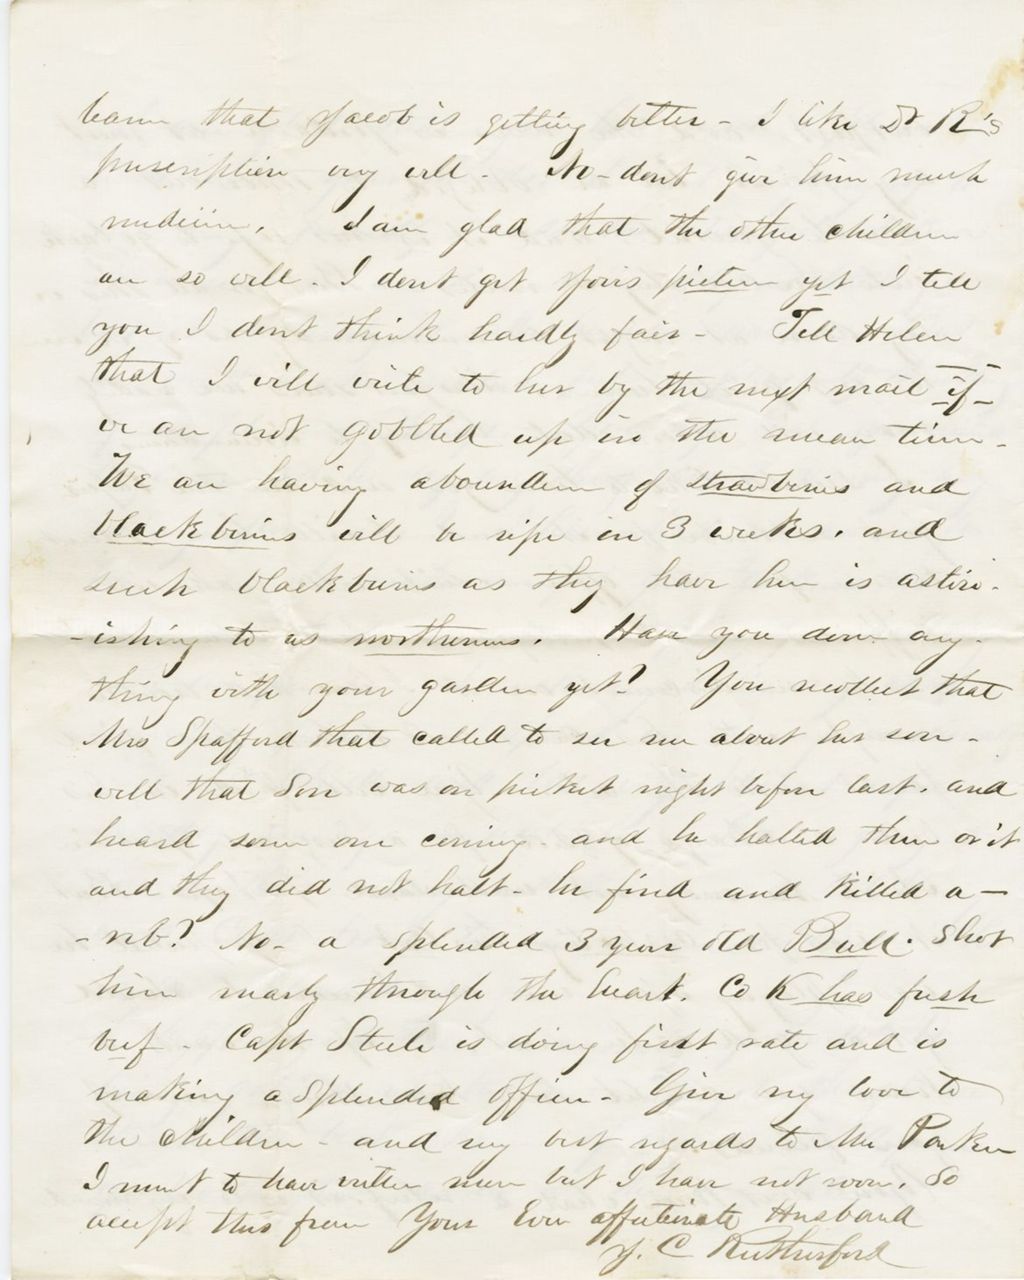 learn that Jacob is getting better - I like Dr R's
prescription very well - No - dont give him much
medicine. I am glad that the other children
are so well - I dont get Yours picture yet I tell
you I dont think hardly fair - Tell Helen
that I will write to her by the next mail if -
we are not gobbled up in the mean time -
We are having aboundence of strawberries and
blackberries will be ripe in 3 weeks. and
such blackberries as they have here is aston-
-ishing to us northerners. Have you done any-
thing with your garden yet? You recollect that
Mrs Spafford that called to see me about her son -
well that Son was on picket night before last. and
heard some one coming - and he halted them or it
and they did not halt - he fired and killed a -
- reb? No - a splended 3 year old Bull. Shot
him nearly through the heart. Co K has fresh
beef - Capt Steele is doing first rate and is
making a splended officer - Give my love to
the children - and my best regards to Mr Parker
I ment to have written more but I have not room. So
accept this from Your Ever affectionate Husband
J. C Rutherford